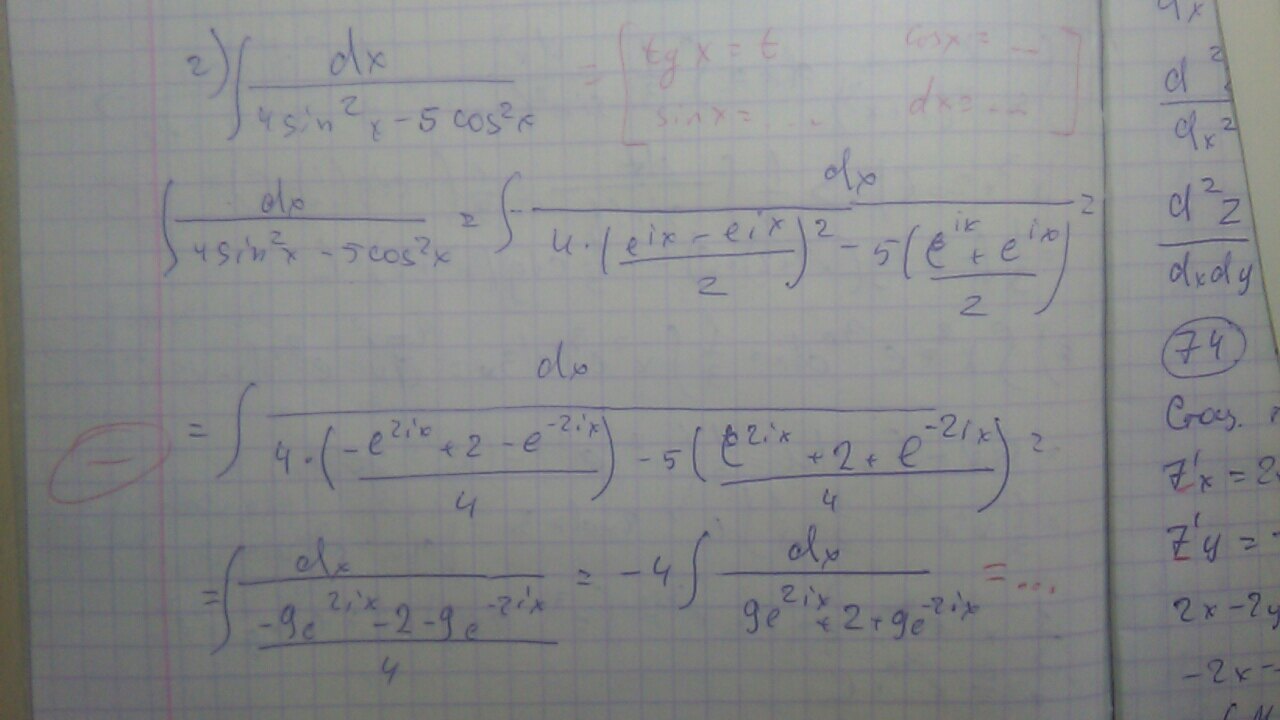 2) ∫ dx / (4 sin²x − 5 cos²x) = [ tg x = t   cos x = ...
sin x = ...   dx = ... ]
∫ dx / (4 sin²x − 5 cos²x) = ∫ dx / (4 · ((e^{ix} − e^{ix}) / 2)² − 5 ((e^{ix} + e^{ix}) / 2)) =
= ∫ dx / (4 · ((−e^{2ix} + 2 − e^{−2ix}) / 4) − 5 ((e^{2ix} + 2 + e^{−2ix}) / 4)) =
−
= ∫ dx / ((−9e^{2ix} − 2 − 9e^{−2ix}) / 4) = −4 ∫ dx / (9e^{2ix} + 2 + 9e^{−2ix}) = ...
d² / dx²
d²z / dxdy
74
z'x = 2
z'y = −
2x − 2y
−2x −